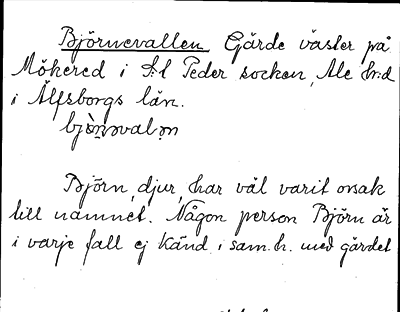 Björnevallen Gärde väster på
Mökered i S:t Peder socken, Ale h:d
i Älfsborgs län.
bjò̤ṇvalən
Björn, djur, har väl varit orsak
till namnet. Någon person Björn är
i varje fall ej känd i sam.h. med gärdet